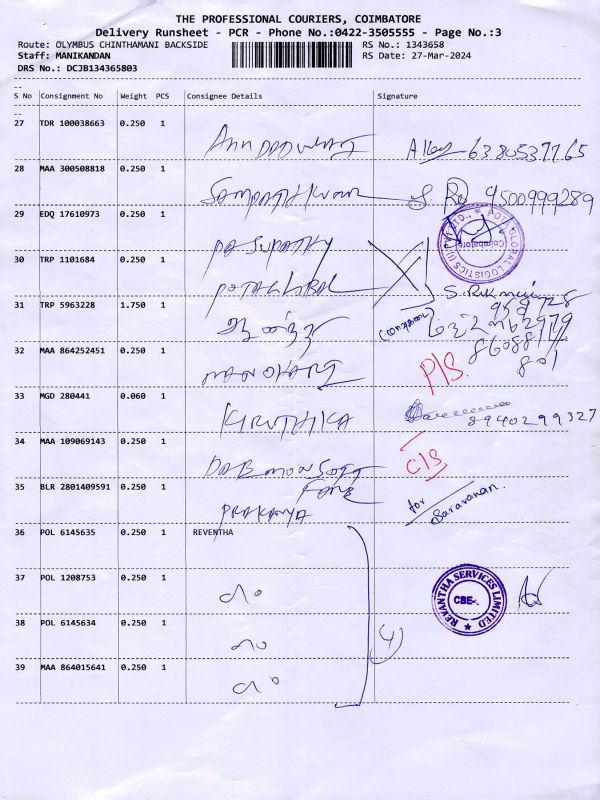 THE PROFESSIONAL COURIERS, COIMBATORE
Delivery Runsheet - PCR - Phone No.:0422-3505555 - Page No.:3
Route: OLYMBUS CHINTHAMANI BACKSIDE
RS No.: 1343658
Staff: MANIKANDAN
RS Date: 27-Mar-2024
DRS No.: DCJB134365803
S No Consignment No Weight PCS Consignee Details Signature
27 TDR 100038663 0.250 1
6380537765
28 MAA 300508818 0.250 1
SAMPATHKUMAR 9500999289
29 EDQ 17610973 0.250 1
PASUPATHY
POTA GLOBAL LOGISTICS (I) Coimbatore
30 TRP 1101684 0.250 1
POTAGLOBAL
31 TRP 5963228 1.750 1
S. Rukmani
32 MAA 864252451 0.250 1
MANOHARI
P/S.
33 MGD 280441 0.060 1
KIRUTHIKA 8940299327
34 MAA 109069143 0.250 1
C/S
35 BLR 2801409591 0.250 1
for Saravanan.
36 POL 6145635 0.250 1 REVENTHA
37 POL 1208753 0.250 1
REVANTHA SERVICES LIMITED CBE-
38 POL 6145634 0.250 1
4)
39 MAA 864015641 0.250 1